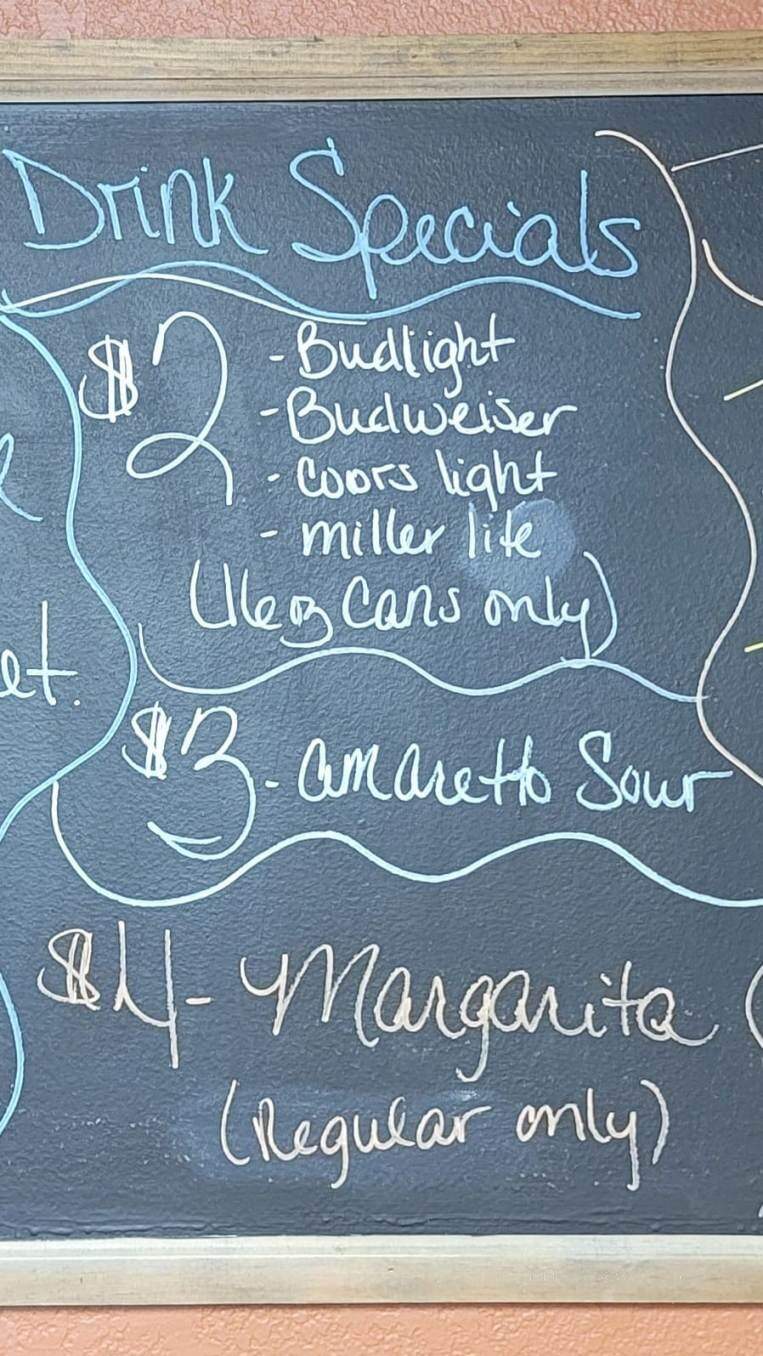 Drink Specials
$2 - Budlight
- Budweiser
- Coors light
- miller lite
(16oz Cans only)
$3 - amaretto Sour
$4 - Margarita
(Regular only)
et.